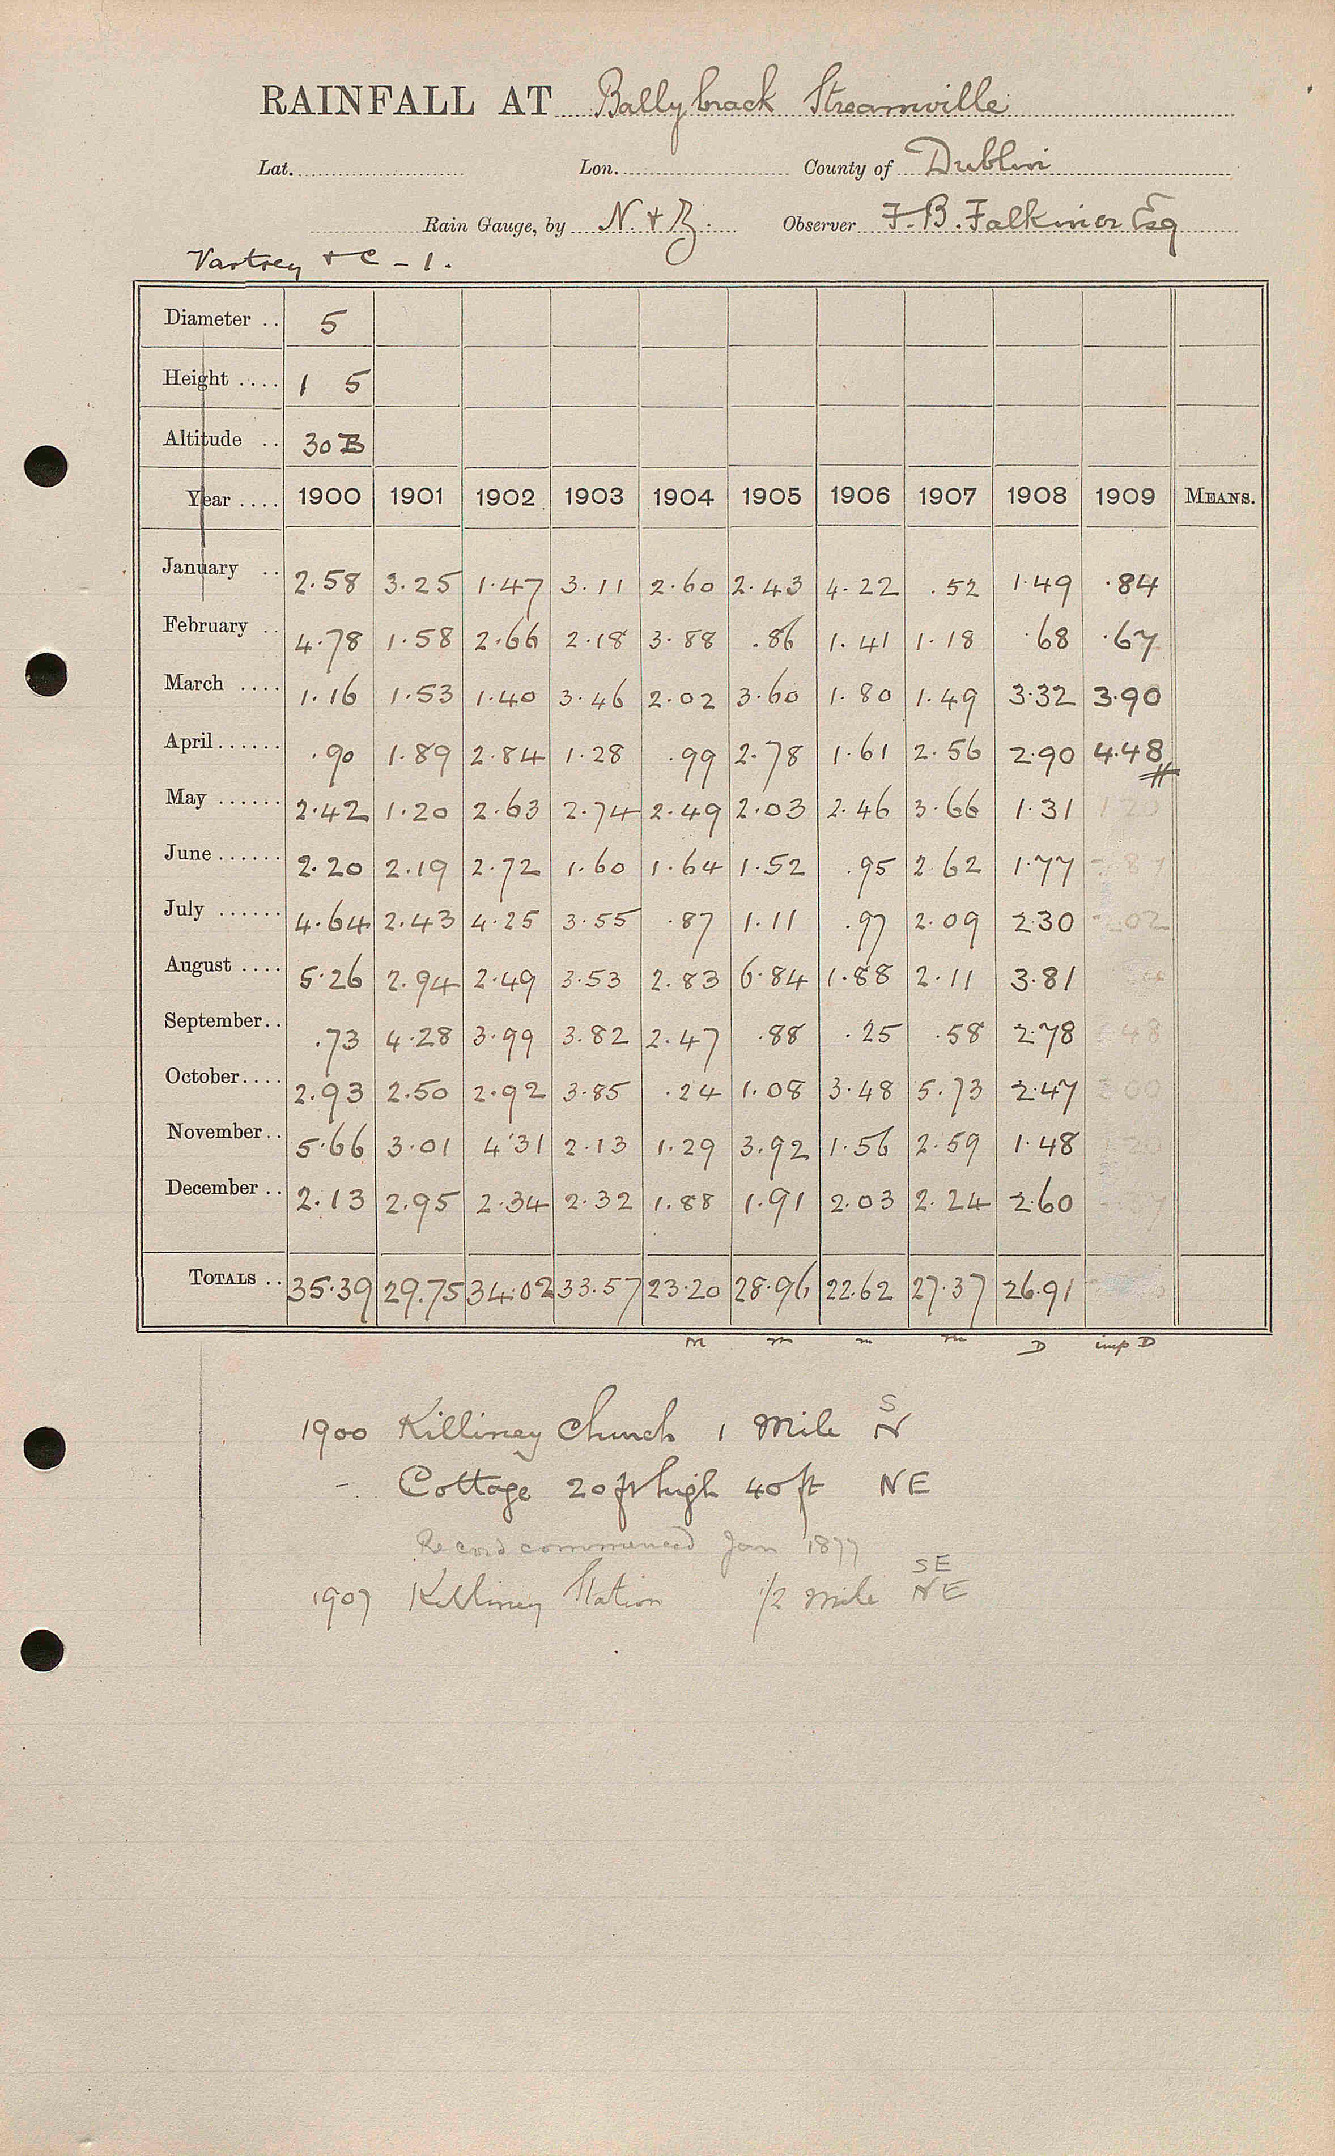 RAINFALL AT Ballybrack Streamville
Lat. Lon. County of Dublin
Rain Gauge, by N. & Z. Observer F. B. Falkiner Esq
Vartrey & C - 1.
Diameter .. 5
Height .... 1 5
Altitude .. 30 B
Year .... 1900 1901 1902 1903 1904 1905 1906 1907 1908 1909 MEANS.
January .. 2.58 3.25 1.47 3.11 2.60 2.43 4.22 .52 1.49 .84
February .. 4.78 1.58 2.66 2.18 3.88 .86 1.41 1.18 .68 .67
March .... 1.16 1.53 1.40 3.46 2.02 3.60 1.80 1.49 3.32 3.90
April...... .90 1.89 2.84 1.28 .99 2.78 1.61 2.56 2.90 4.48
May ...... 2.42 1.20 2.63 2.74 2.49 2.03 2.46 3.66 1.31
June...... 2.20 2.19 2.72 1.60 1.64 1.52 .95 2.62 1.77
July ...... 4.64 2.43 4.25 3.55 .87 1.11 .97 2.09 2.30
August .... 5.26 2.94 2.49 3.53 2.83 6.84 1.88 2.11 3.81
September.. .73 4.28 3.99 3.82 2.47 .88 .25 .58 2.78
October.... 2.93 2.50 2.92 3.85 .24 1.08 3.48 5.73 2.47
November.. 5.66 3.01 4.31 2.13 1.29 3.92 1.56 2.59 1.48
December .. 2.13 2.95 2.34 2.32 1.88 1.91 2.03 2.24 2.60
TOTALS .. 35.39 29.75 34.02 33.57 23.20 28.96 22.62 27.37 26.91
m m m m D imp D
1900 Killiney Church 1 Mile N S
-. Cottage 20 ft high 40 ft NE
Record commenced Jan 1877
1907 Killiney Station 1/2 mile NE SE